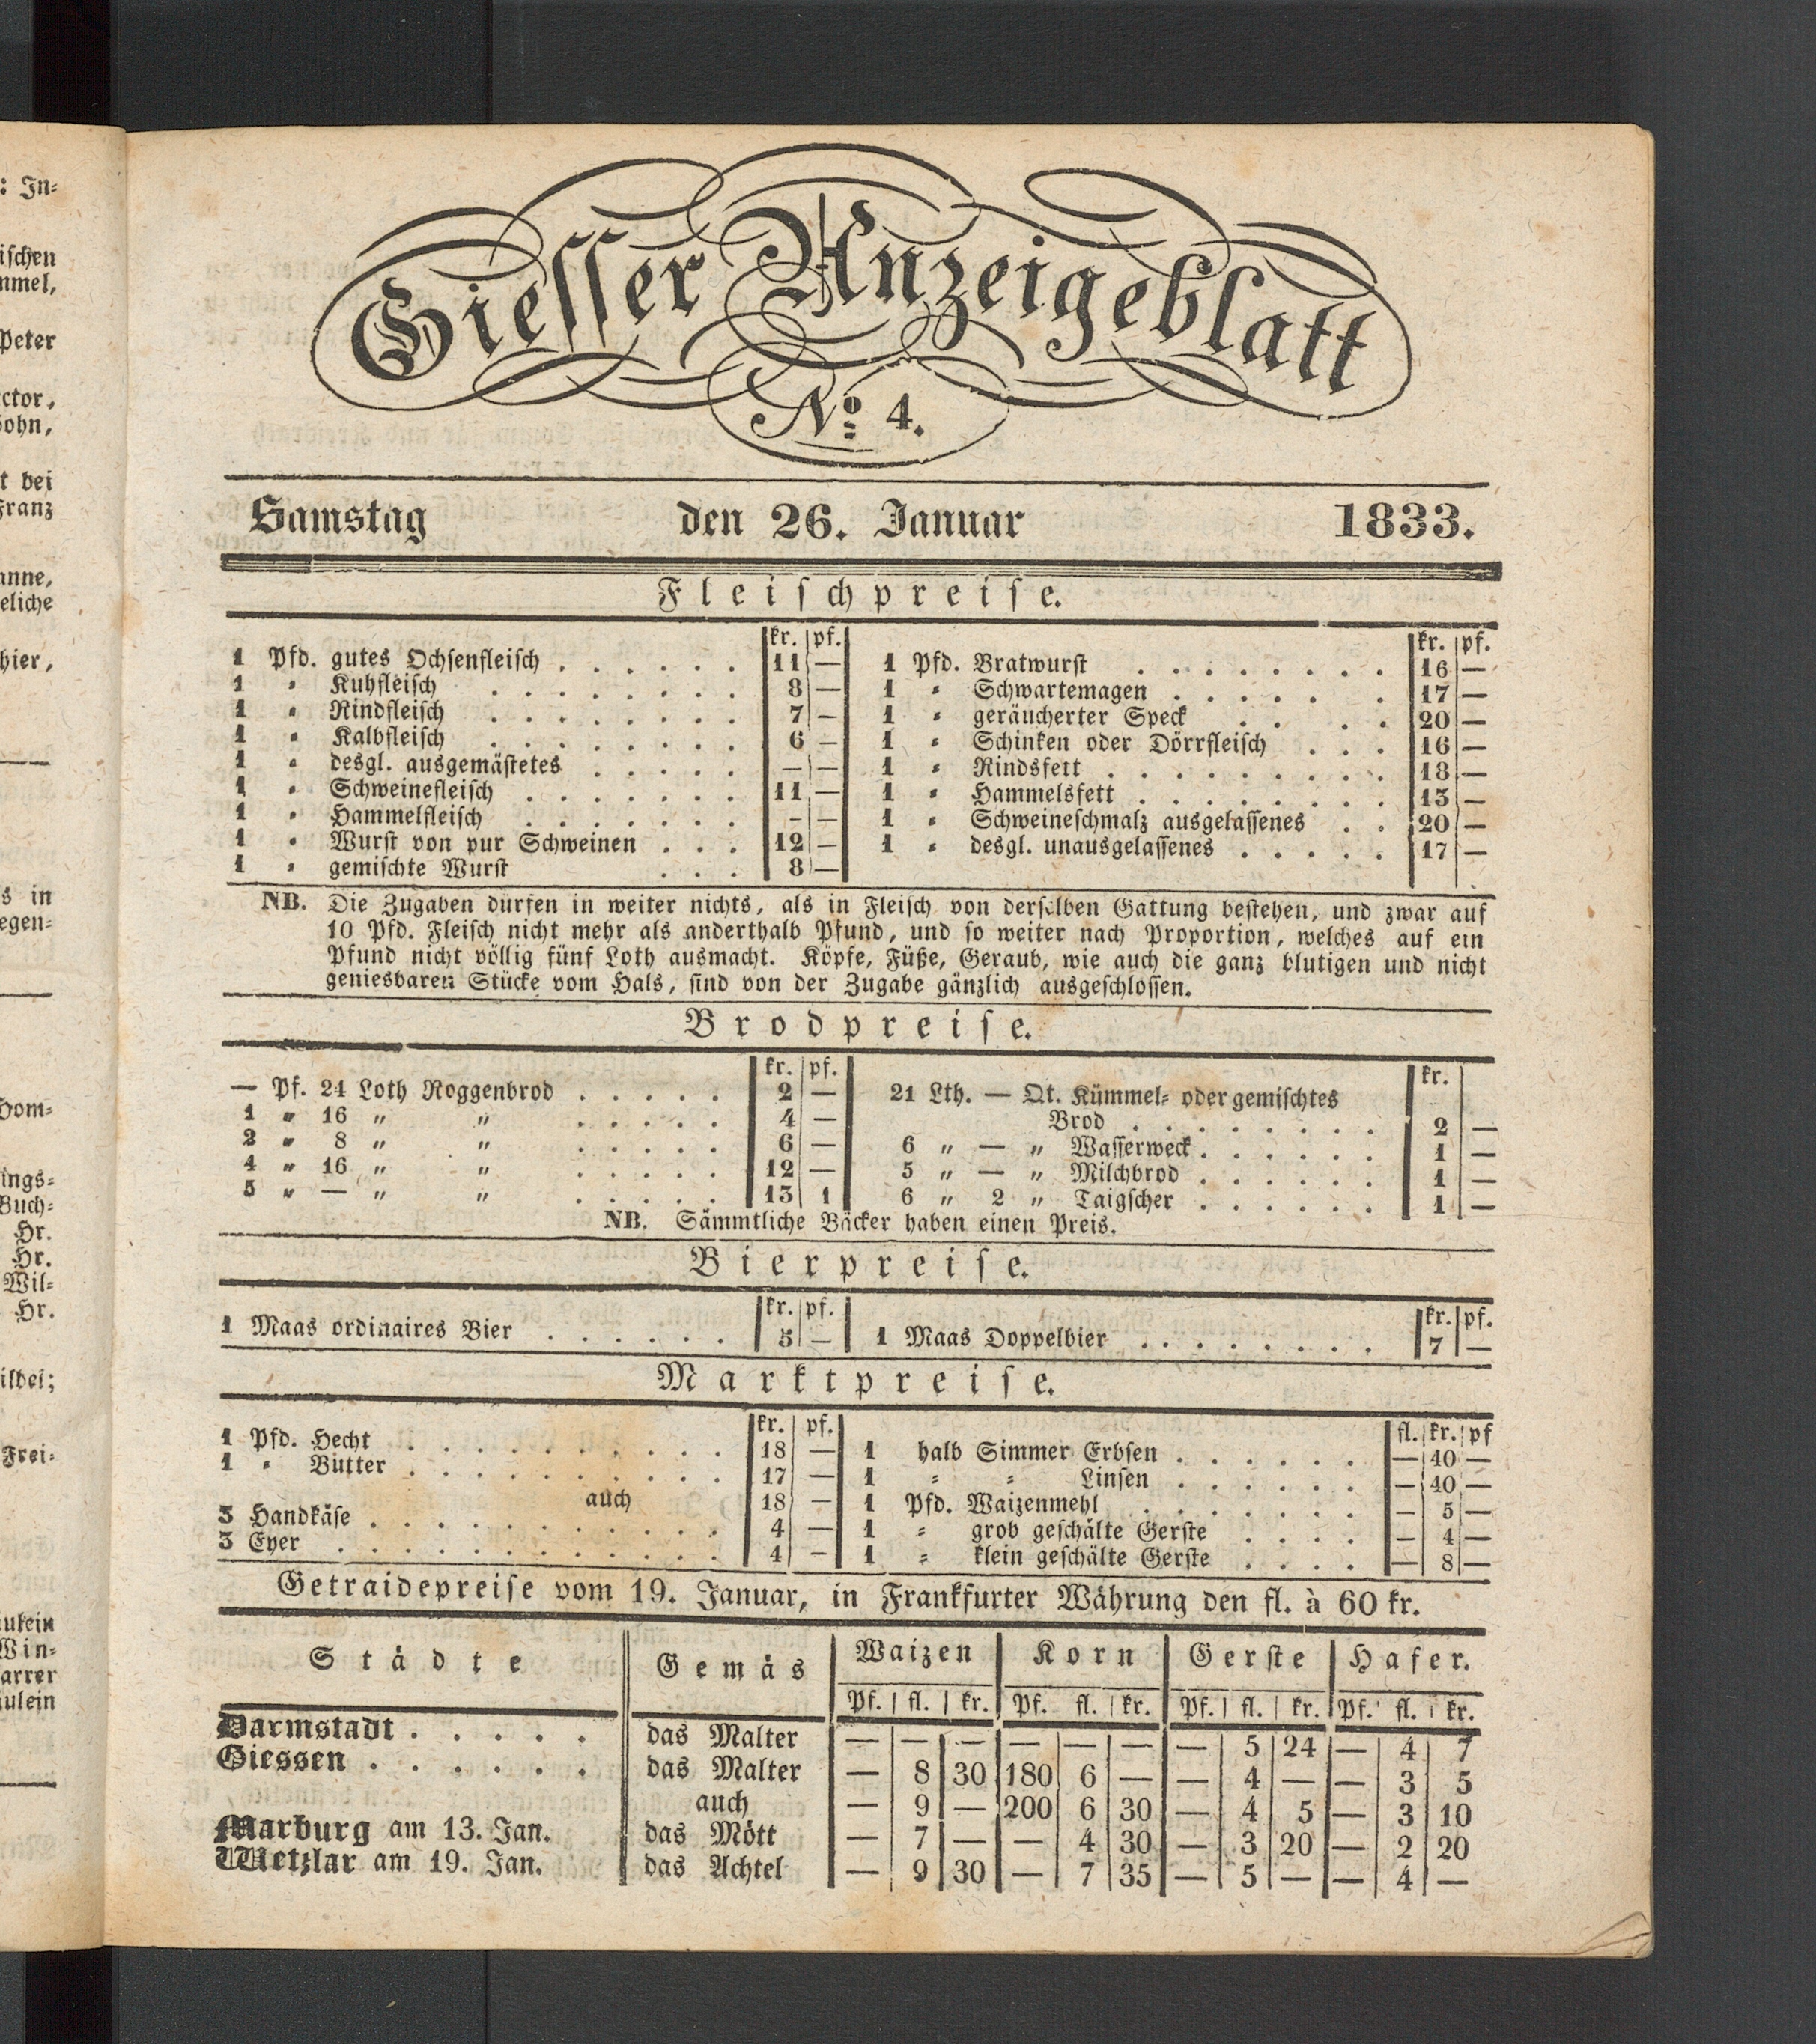 : In-
ischen
mmel,
Peter
ctor,
Sohn,
t bei
Franz
anne,
eliche
hier,
s in
egen-
Hom-
ings-
Buch-
Hr.
Hr.
Wil-
Hr.
ilbel;
Frei-
äulein
Win-
arrer
äulein
Giesser Anzeigeblatt
No. 4.
Samstag den 26. Januar 1833.
Fleischpreise.
kr. pf. kr. pf.
1 Pfd. gutes Ochsenfleisch . . . . . . 11 — 1 Pfd. Bratwurst . . . . . . . . 16 —
1 " Kuhfleisch . . . . . . . . 8 — 1 " Schwartemagen . . . . . . 17 —
1 " Rindfleisch . . . . . . . . 7 — 1 " geräucherter Speck . . . . 20 —
1 " Kalbfleisch . . . . . . . . 6 — 1 " Schinken oder Dörrfleisch . . . 16 —
1 " desgl. ausgemästetes . . . . . — — 1 " Rindsfett . . . . . . . . . 18 —
1 " Schweinefleisch . . . . . . . 11 — 1 " Hammelsfett . . . . . . . . 13 —
1 " Hammelfleisch . . . . . . . — — 1 " Schweineschmalz ausgelassenes . . 20 —
1 " Wurst von pur Schweinen . . . 12 — 1 " desgl. unausgelassenes . . . . . 17 —
1 " gemischte Wurst . . . 8 —
NB. Die Zugaben dürfen in weiter nichts, als in Fleisch von derselben Gattung bestehen, und zwar auf
10 Pfd. Fleisch nicht mehr als anderthalb Pfund, und so weiter nach Proportion, welches auf ein
Pfund nicht völlig fünf Loth ausmacht. Köpfe, Füße, Geraub, wie auch die ganz blutigen und nicht
geniesbaren Stücke vom Hals, sind von der Zugabe gänzlich ausgeschlossen.
Brodpreise.
kr. pf. kr.
— Pf. 24 Loth Roggenbrod . . . . . 2 — 21 Lth. — Qt. Kümmel- oder gemischtes
1 " 16 " " . . . . . 4 — Brod . . . . . . . . 2 —
2 " 8 " " . . . . . 6 — 6 " — " Wasserweck . . . . . . 1 —
4 " 16 " " . . . . . 12 — 5 " — " Milchbrod . . . . . . 1 —
5 " — " " . . . . . 13 1 6 " 2 " Taigscher . . . . . . 1 —
NB. Sämmtliche Bäcker haben einen Preis.
Bierpreise.
kr. pf. kr. pf.
1 Maas ordinaires Bier . . . . . . 5 — 1 Maas Doppelbier . . . . . . . . 7 —
Marktpreise.
kr. pf. fl. kr. pf
1 Pfd. Hecht . . . . . . . . . . 18 — 1 halb Simmer Erbsen . . . . . . — 40 —
1 " Butter . . . . . . . . . . 17 — 1 " " Linsen . . . . . . — 40 —
auch 18 — 1 Pfd. Waizenmehl . . . . . . . — 5 —
3 Handkäse . . . . . . . . . . . 4 — 1 " grob geschälte Gerste . . . . — 4 —
3 Eyer . . . . . . . . . . . . 4 — 1 " klein geschälte Gerste . . . . — 8 —
Getraidepreise vom 19. Januar, in Frankfurter Währung den fl. à 60 kr.
Städte Gemäs Waizen Korn Gerste Hafer.
Pf. fl. kr. Pf. fl. kr. Pf. fl. kr. Pf. fl. kr.
Darmstadt . . . . . das Malter — — — — — — — 5 24 — 4 7
Giessen . . . . . . das Malter — 8 30 180 6 — — 4 — — 3 5
auch — 9 — 200 6 30 — 4 5 — 3 10
Marburg am 13. Jan. das Mött — 7 — — 4 30 — 3 20 — 2 20
Wetzlar am 19. Jan. das Achtel — 9 30 — 7 35 — 5 — — 4 —